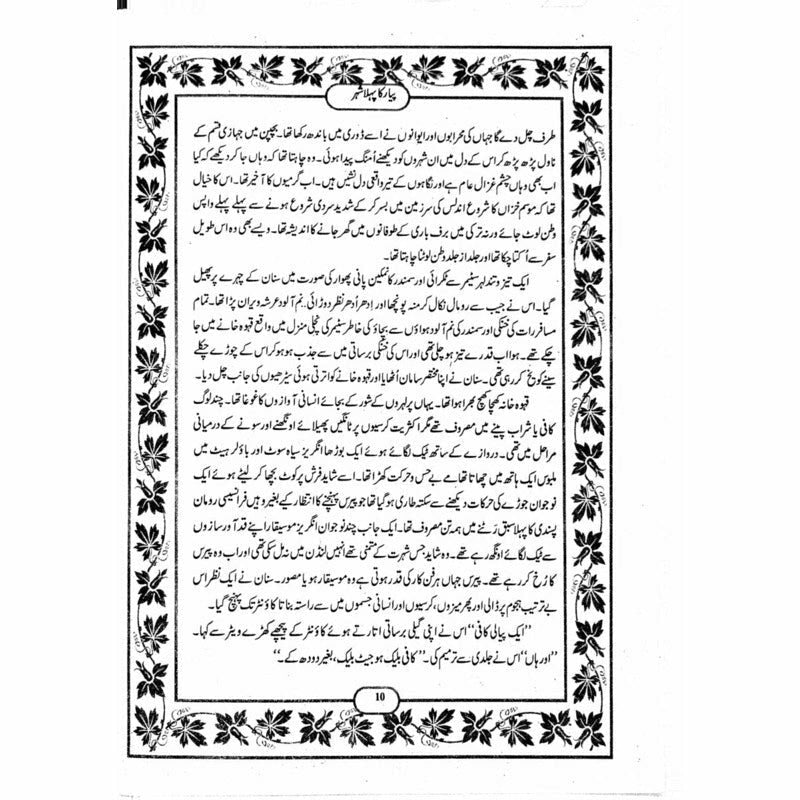 پیار کا پہلا شہر
طرف چل دے گا جہاں کی محرابوں اور ایوانوں نے اسے ڈوری میں باندھ رکھا تھا۔ بچپن میں جہازی قسم کے
ناول پڑھ پڑھ کر اس کے دل میں ان شہروں کو دیکھنے اُمنگ پیدا ہوئی۔ وہ چاہتا تھا کہ وہاں جا کر دیکھے کہ کیا
اب بھی وہاں چشم غزال عام ہے اور نگاہوں کے تیر واقعی دل نشیں ہیں۔ اب گرمیوں کا آخیر تھا۔ اس کا خیال
تھا کہ موسم خزاں کا شروع اندلس کی سرزمین میں بسر کر کے شدید سردی شروع ہونے سے پہلے پہلے واپس
وطن لوٹ جائے ورنہ ترکی میں برف باری کے طوفانوں میں گھر جانے کا اندیشہ تھا۔ ویسے بھی وہ اس طویل
سفر سے اُکتا چکا تھا اور جلد از جلد وطن لوٹنا چاہتا تھا۔
ایک تیز و تند لہر سٹیمر سے ٹکرائی اور سمندر کا نمکین پانی پھوار کی صورت میں سنان کے چہرے پر پھیل
گیا۔ اس نے جیب سے رومال نکال کر منہ پونچھا اور اِدھر اُدھر نظر دوڑائی۔ نم آلود عرشہ ویران پڑا تھا۔ تمام
مسافر رات کی خنکی اور سمندر کی نم آلود ہواؤں سے بچاؤ کی خاطر سٹیمر کی نچلی منزل میں واقع قہوہ خانے میں جا
چکے تھے۔ ہوا اب قدرے تیز ہو چلی تھی اور اس کی خنکی برساتی میں سے جذب ہو ہو کر اس کے چوڑے چکلے
سینے کو یخ کر رہی تھی۔ سنان نے اپنا مختصر سامان اُٹھایا اور قہوہ خانے کو اترتی ہوئی سیڑھیوں کی جانب چل دیا۔
قہوہ خانہ کھچا کھچ بھرا ہوا تھا۔ یہاں پر لہروں کے شور کے بجائے انسانی آوازوں کا غوغا تھا۔ چند لوگ
کافی یا شراب پینے میں مصروف تھے مگر اکثریت کرسیوں پر ٹانگیں پھیلائے اونگھنے اور سونے کے درمیانی
مراحل میں تھی۔ دروازے کے ساتھ ٹیک لگائے ہوئے ایک بوڑھا انگریز سیاہ سوٹ اور باؤلر ہیٹ میں
ملبوس ایک ہاتھ میں چھاتا تھامے بے حس و حرکت کھڑا تھا۔ اسے شاید فرش پر کوٹ بچھا کر لیٹے ہوئے ایک
نوجوان جوڑے کی حرکات دیکھنے سے سکتہ طاری ہو گیا تھا جو پیرس پہنچنے کا انتظار کیے بغیر وہیں فرانسیسی رومان
پسندی کا پہلا سبق رٹنے میں ہمہ تن مصروف تھا۔ ایک جانب چند نوجوان انگریز موسیقار اپنے قد آور سازوں
سے ٹیک لگائے اونگھ رہے تھے۔ وہ شاید جس شہرت کے متمنی تھے انہیں لنڈن میں نہ مل سکی تھی اور اب وہ پیرس
کا رُخ کر رہے تھے۔ پیرس جہاں ہر فن کار کی قدر ہوتی ہے وہ موسیقار ہو یا مصور۔ سنان نے ایک نظر اس
بے ترتیب ہجوم پر ڈالی اور پھر میزوں، کرسیوں اور انسانی جسموں میں سے راستہ بناتا کاؤنٹر تک پہنچ گیا۔
”ایک پیالی کافی“ اس نے اپنی گیلی برساتی اتارتے ہوئے کاؤنٹر کے پیچھے کھڑے ویٹر سے کہا۔
”اور ہاں“ اس نے جلدی سے ترمیم کی۔ ”کافی بلیک ہو جیٹ بلیک، بغیر دودھ کے۔“
10